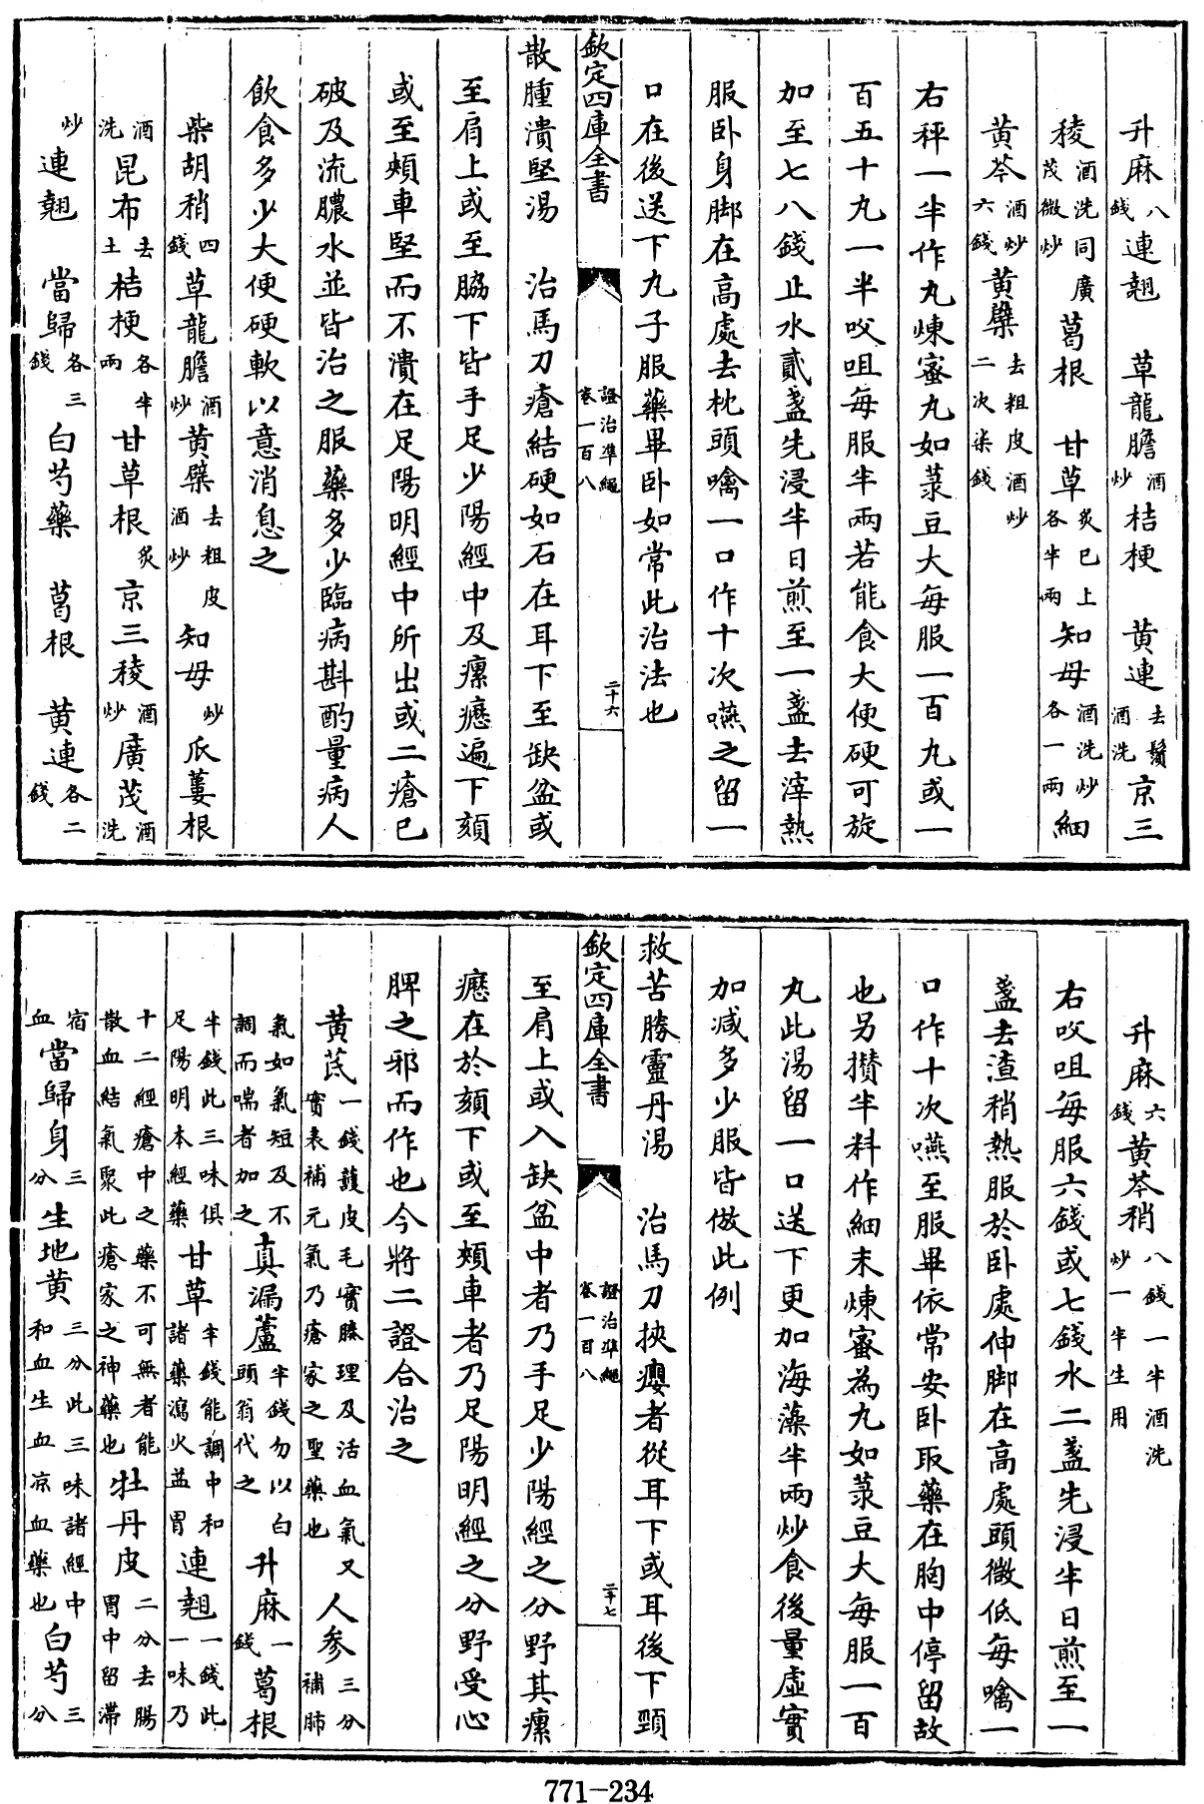 升麻八錢連翹 草龍膽酒炒桔梗 黄連去鬚酒洗京三
稜酒洗同廣茂微炒葛根 甘草炙已上各半兩知母酒洗炒各一兩細
黄芩酒炒六錢黄檗去粗皮酒炒二次柒錢
右秤一半作丸煉蜜丸如菉豆大每服一百丸或一
百五十九一半㕮咀每服半兩若能食大便硬可旋
加至七八錢止水貳盞先浸半日煎至一盞去滓熱
服卧身脚在高處去枕頭噙一口作十次嚥之留一
口在後送下丸子服藥畢卧如常此治法也
欽定四庫全書 證治準繩 卷一百八 二十六
散腫潰堅湯 治馬刀瘡結硬如石在耳下至缺盆或
至肩上或至脇下皆手足少陽經中及瘰癧遍下頦
或至頰車堅而不潰在足陽明經中所出或二瘡已
破及流膿水並皆治之服藥多少臨病斟酌量病人
飲食多少大便硬軟以意消息之
柴胡稍四錢草龍膽酒炒黄檗去粗皮酒炒知母炒瓜蔞根
酒洗昆布去土桔梗各半兩甘草根炙京三稜酒炒廣茂酒洗
炒連翹 當歸各三錢白芍藥 葛根 黄連各二錢
升麻六錢黄芩稍八錢一半酒洗炒一半生用
右㕮咀每服六錢或七錢水二盞先浸半日煎至一
盞去渣稍熱服於卧處伸脚在高處頭微低每噙一
口作十次嚥至服畢依常安卧取藥在胸中停留故
也另攢半料作細末煉蜜為丸如菉豆大每服一百
丸此湯留一口送下更加海藻半兩炒食後量虛實
加减多少服皆倣此例
救苦勝靈丹湯 治馬刀挾癭者從耳下或耳後下頸
欽定四庫全書 證治準繩 卷一百八 二十七
至肩上或入缺盆中者乃手足少陽經之分野其瘰
癧在於頦下或至頰車者乃足陽明經之分野受心
脾之邪而作也今將二證合治之
黄芪一錢䕶皮毛實腠理及活血氣又實表補元氣乃瘡家之聖藥也人參三分補肺
氣如氣短及不調而喘者加之真漏蘆半錢勿以白頭翁代之升麻一錢葛根
半錢此三味俱足陽明本經藥甘草半錢能調中和諸藥瀉火益胃連翹一錢此一味乃
十二經瘡中之藥不可無者能散血結氣聚此瘡家之神藥也牡丹皮二分去腸胃中留滯
宿血當歸身三分生地黄三分此三味諸經中和血生血凉血藥也白芍三分
771-234